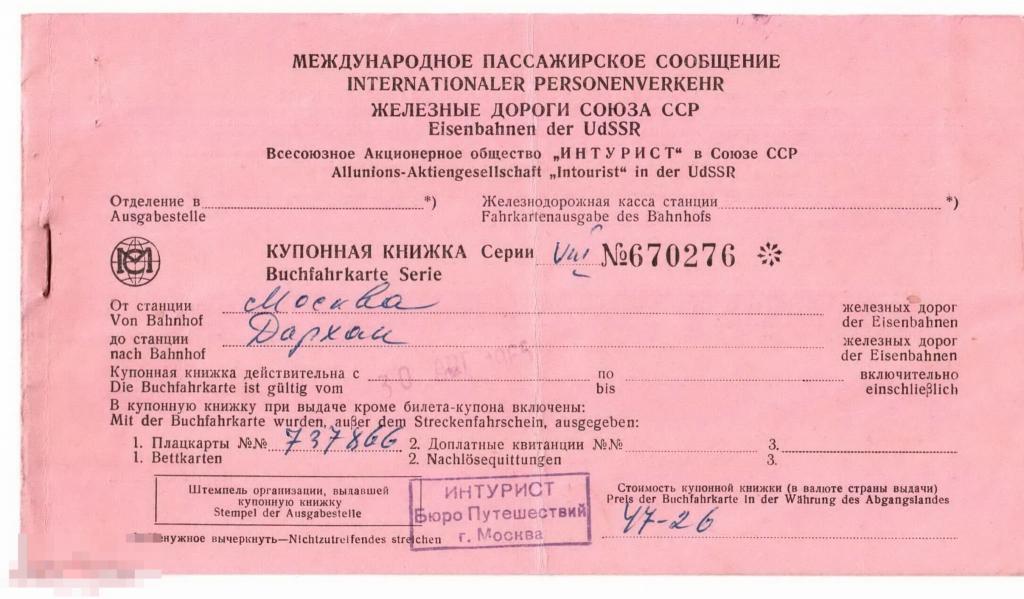 МЕЖДУНАРОДНОЕ ПАССАЖИРСКОЕ СООБЩЕНИЕ
INTERNATIONALER PERSONENVERKEHR
ЖЕЛЕЗНЫЕ ДОРОГИ СОЮЗА ССР
Eisenbahnen der UdSSR
Всесоюзное Акционерное общество „ИНТУРИСТ“ в Союзе ССР
Allunions-Aktiengesellschaft „Intourist“ in der UdSSR
Отделение в *) Железнодорожная касса станции *)
Ausgabestelle Fahrkartenausgabe des Bahnhofs
КУПОННАЯ КНИЖКА Серии VIII №670276
Buchfahrkarte Serie
От станции Москва железных дорог
Von Bahnhof der Eisenbahnen
до станции Дархан железных дорог
nach Bahnhof der Eisenbahnen
Купонная книжка действительна с по включительно
Die Buchfahrkarte ist gültig vom 30 АВГ bis einschließlich
В купонную книжку при выдаче кроме билета-купона включены:
Mit der Buchfahrkarte wurden, außer dem Streckenfahrschein, ausgegeben:
1. Плацкарты №№ 737866 2. Доплатные квитанции №№ 3.
1. Bettkarten 2. Nachlösequittungen 3.
Штемпель организации, выдавшей
купонную книжку
Stempel der Ausgabestelle
ИНТУРИСТ
Бюро Путешествий
г. Москва
Стоимость купонной книжки (в валюте страны выдачи)
Preis der Buchfahrkarte in der Währung des Abgangslandes
47-26
ненужное вычеркнуть—Nichtzutreffendes streichen